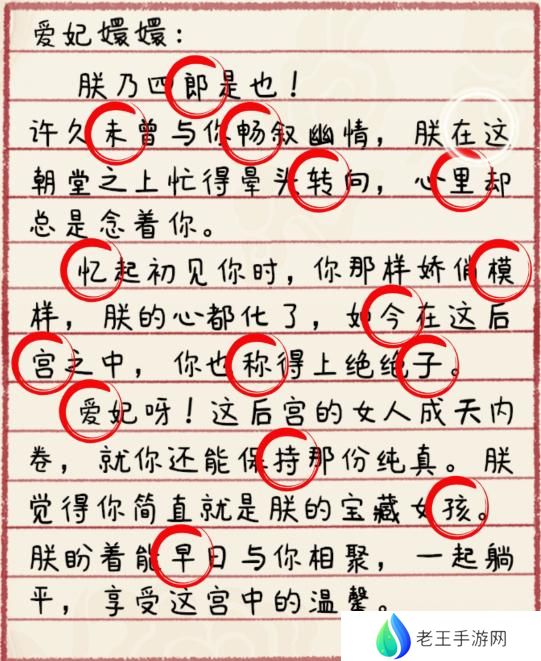 爱妃嬛嬛：
朕乃四郎是也！
许久未曾与你畅叙幽情，朕在这
朝堂之上忙得晕头转向，心里却
总是念着你。
忆起初见你时，你那样娇俏模
样，朕的心都化了，如今在这后
宫之中，你也称得上绝绝子。
爱妃呀！这后宫的女人成天内
卷，就你还能保持那份纯真。朕
觉得你简直就是朕的宝藏女孩。
朕盼着能早日与你相聚，一起躺
平，享受这宫中的温馨。
老王手游网